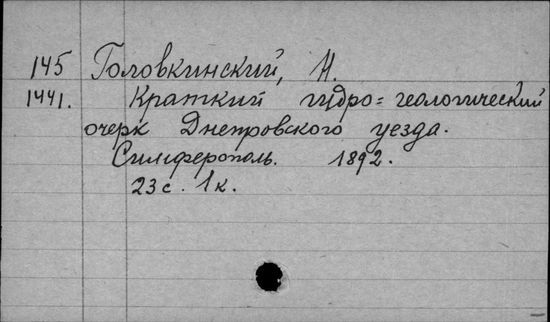 145 Головкинский, Н.
1441. Краткий гидро=геологический
очерк Днепровского уезда.
Симферополь. 1892.
23 с. 1 к.